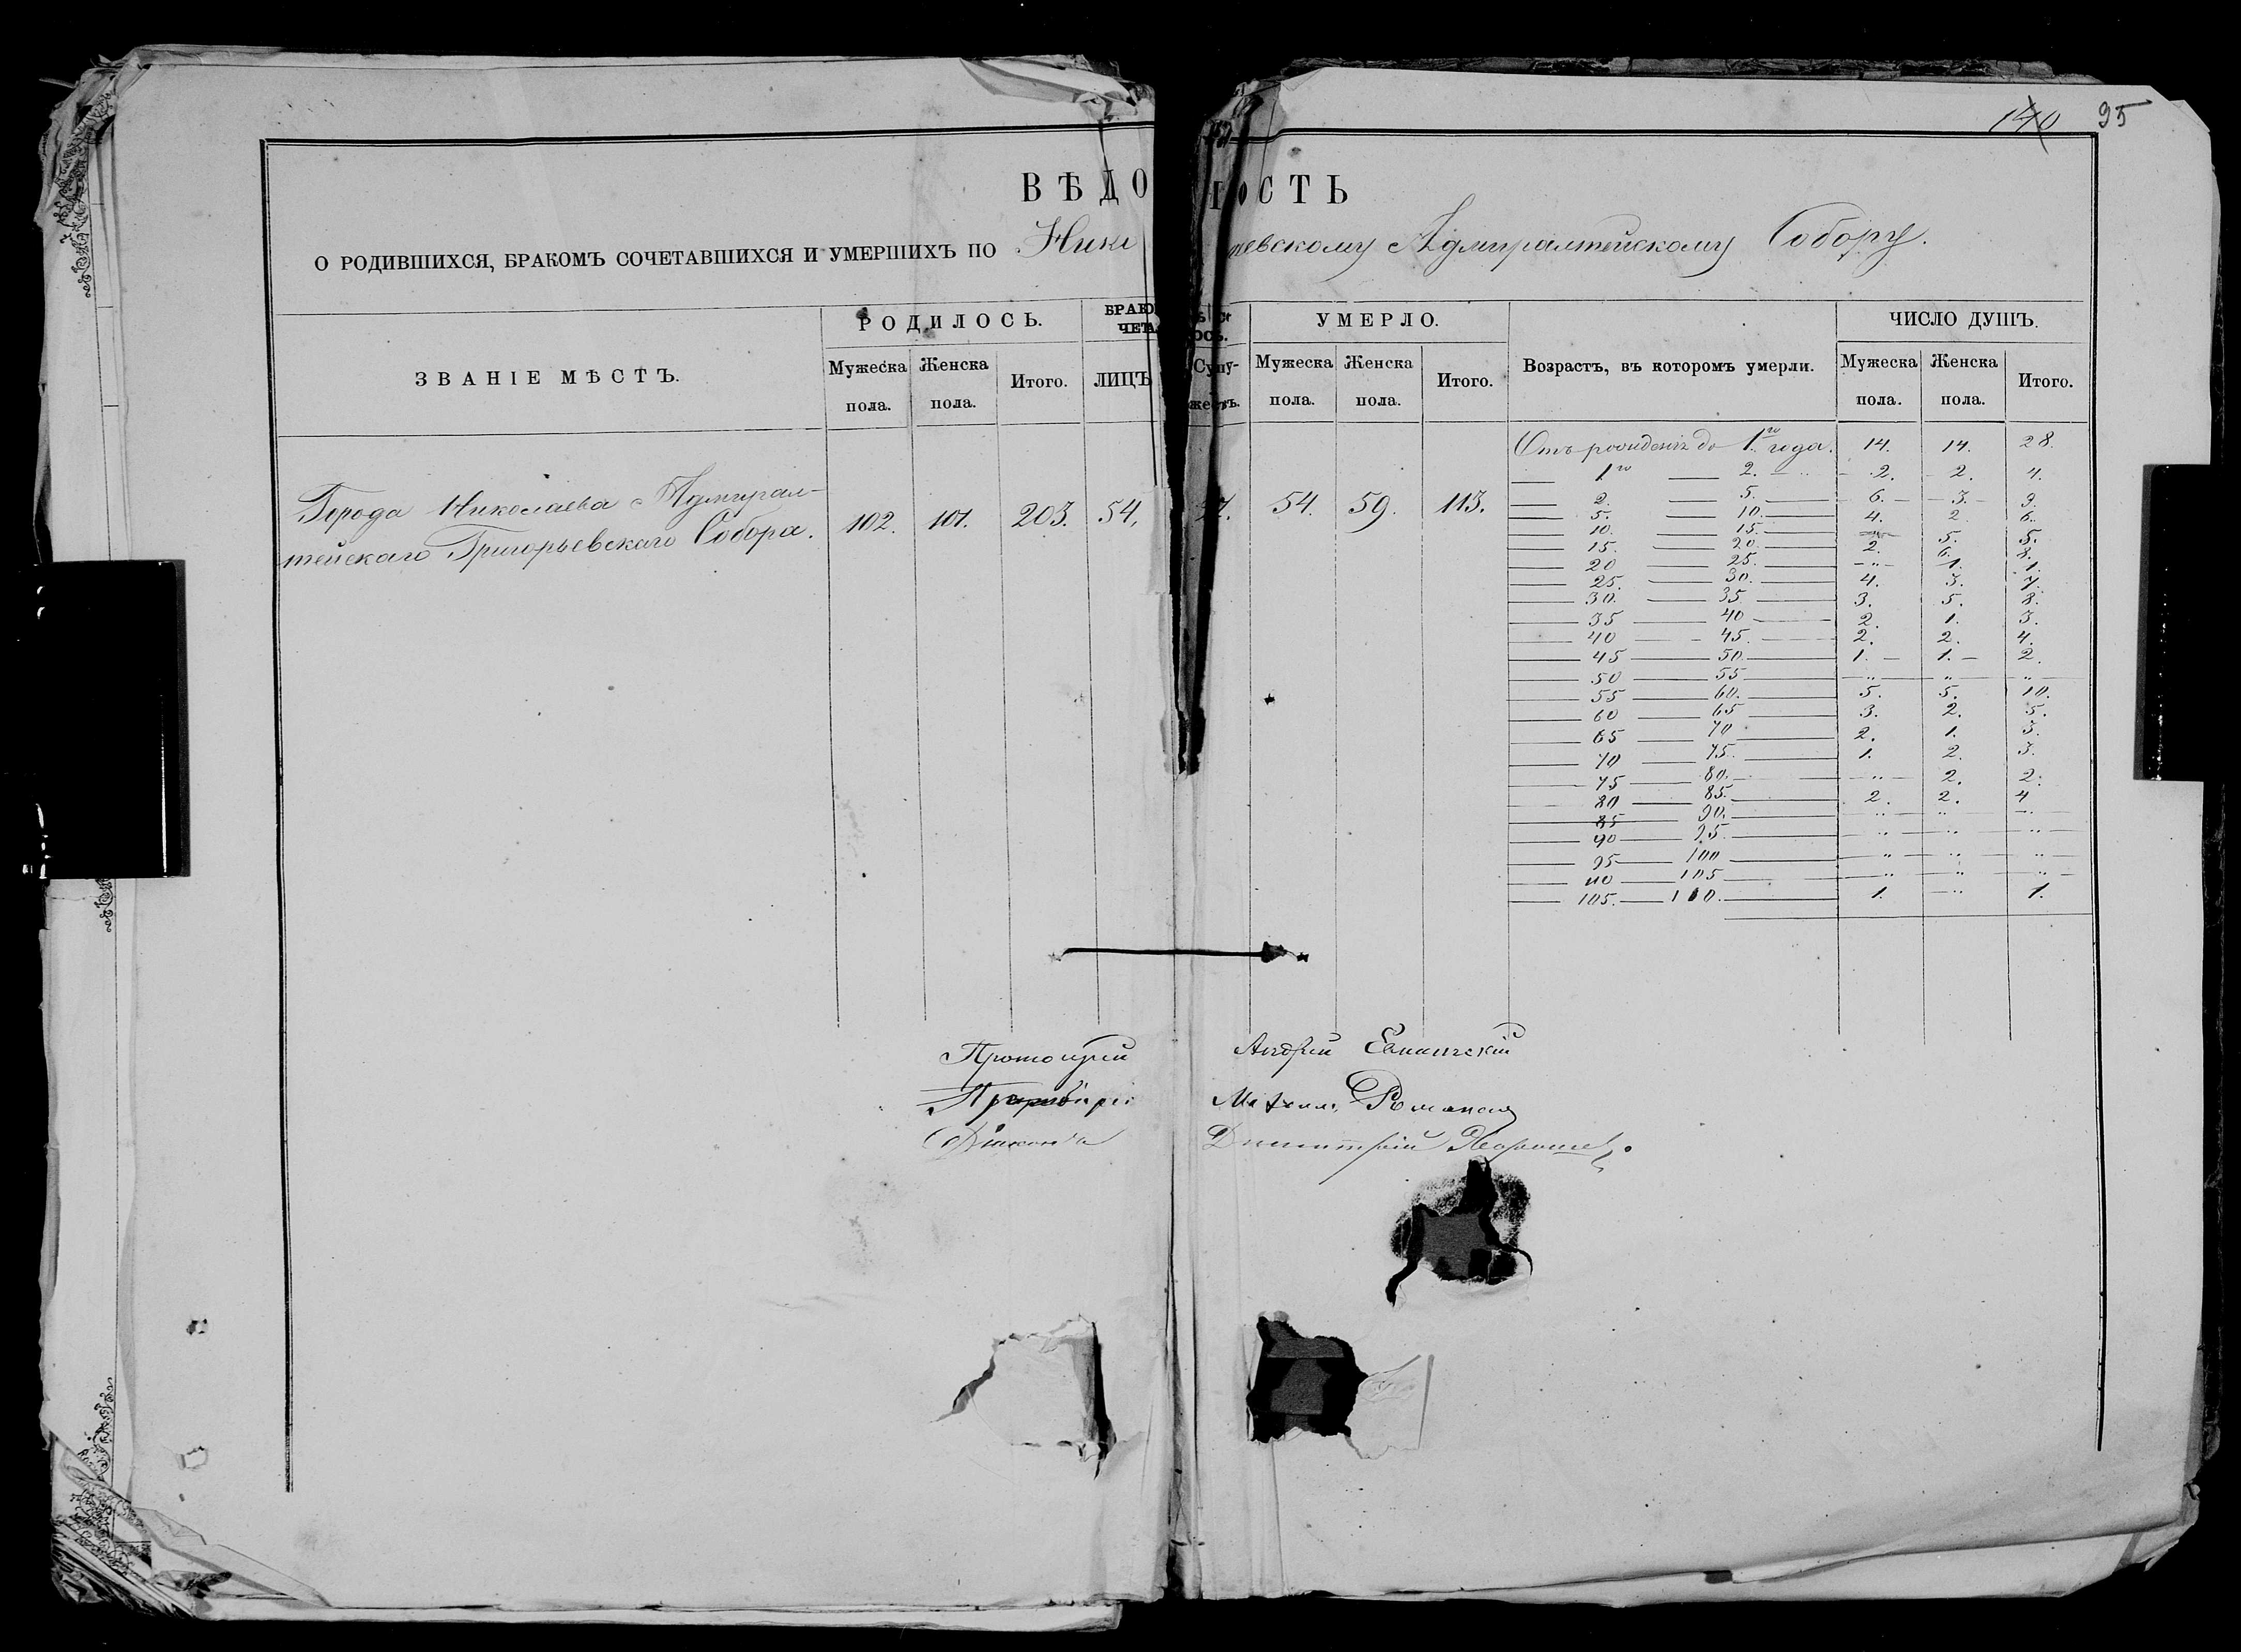 140 95
ВѢДО ОСТЬ
О РОДИВШИХСЯ, БРАКОМЪ СОЧЕТАВШИХСЯ И УМЕРШИХЪ ПО Нико евскому Адмиралтейскому Собору.
ЗВАНІЕ МѢСТЪ. РОДИЛОСЬ. УМЕРЛО. Возрастъ, въ которомъ умерли. ЧИСЛО ДУШЪ.
Мужеска пола. Женска пола. Итого. ЛИЦЪ Супу- жествъ. Мужеска пола. Женска пола. Итого. Мужеска пола. Женска пола. Итого.
Города Николаева Адмирал-
тейскаго Григорьевскаго Собора. 102. 101. 203. 54. 54. 59. 113.
Отъ рожденія до 1го года. 14. 14. 28.
1го 2. 2. 2. 4.
2. 5. 6. 3. 9.
5. 10. 4. 2. 6.
10. 15. " 5. 5.
15. 20. 2. 6. 8.
20 25. " 1. 1.
25. 30. 4. 3. 7.
30. 35 3. 5. 8.
35 40 2. 1. 3.
40 45. 2. 2. 4.
45 50. 1. 1. 2.
50 55 " " "
55 60. 5. 5. 10.
60 65 3. 2. 5.
65 70 2. 1. 3.
70 75. 1. 2. 3.
75 80. " 2. 2.
80 85. 2. 2. 4
85 90. " " "
90 95. " " "
95 100 " " "
105 " " "
105. 110. 1. " 1.
Протоіерей Андрей
Діаконъ Димитрій